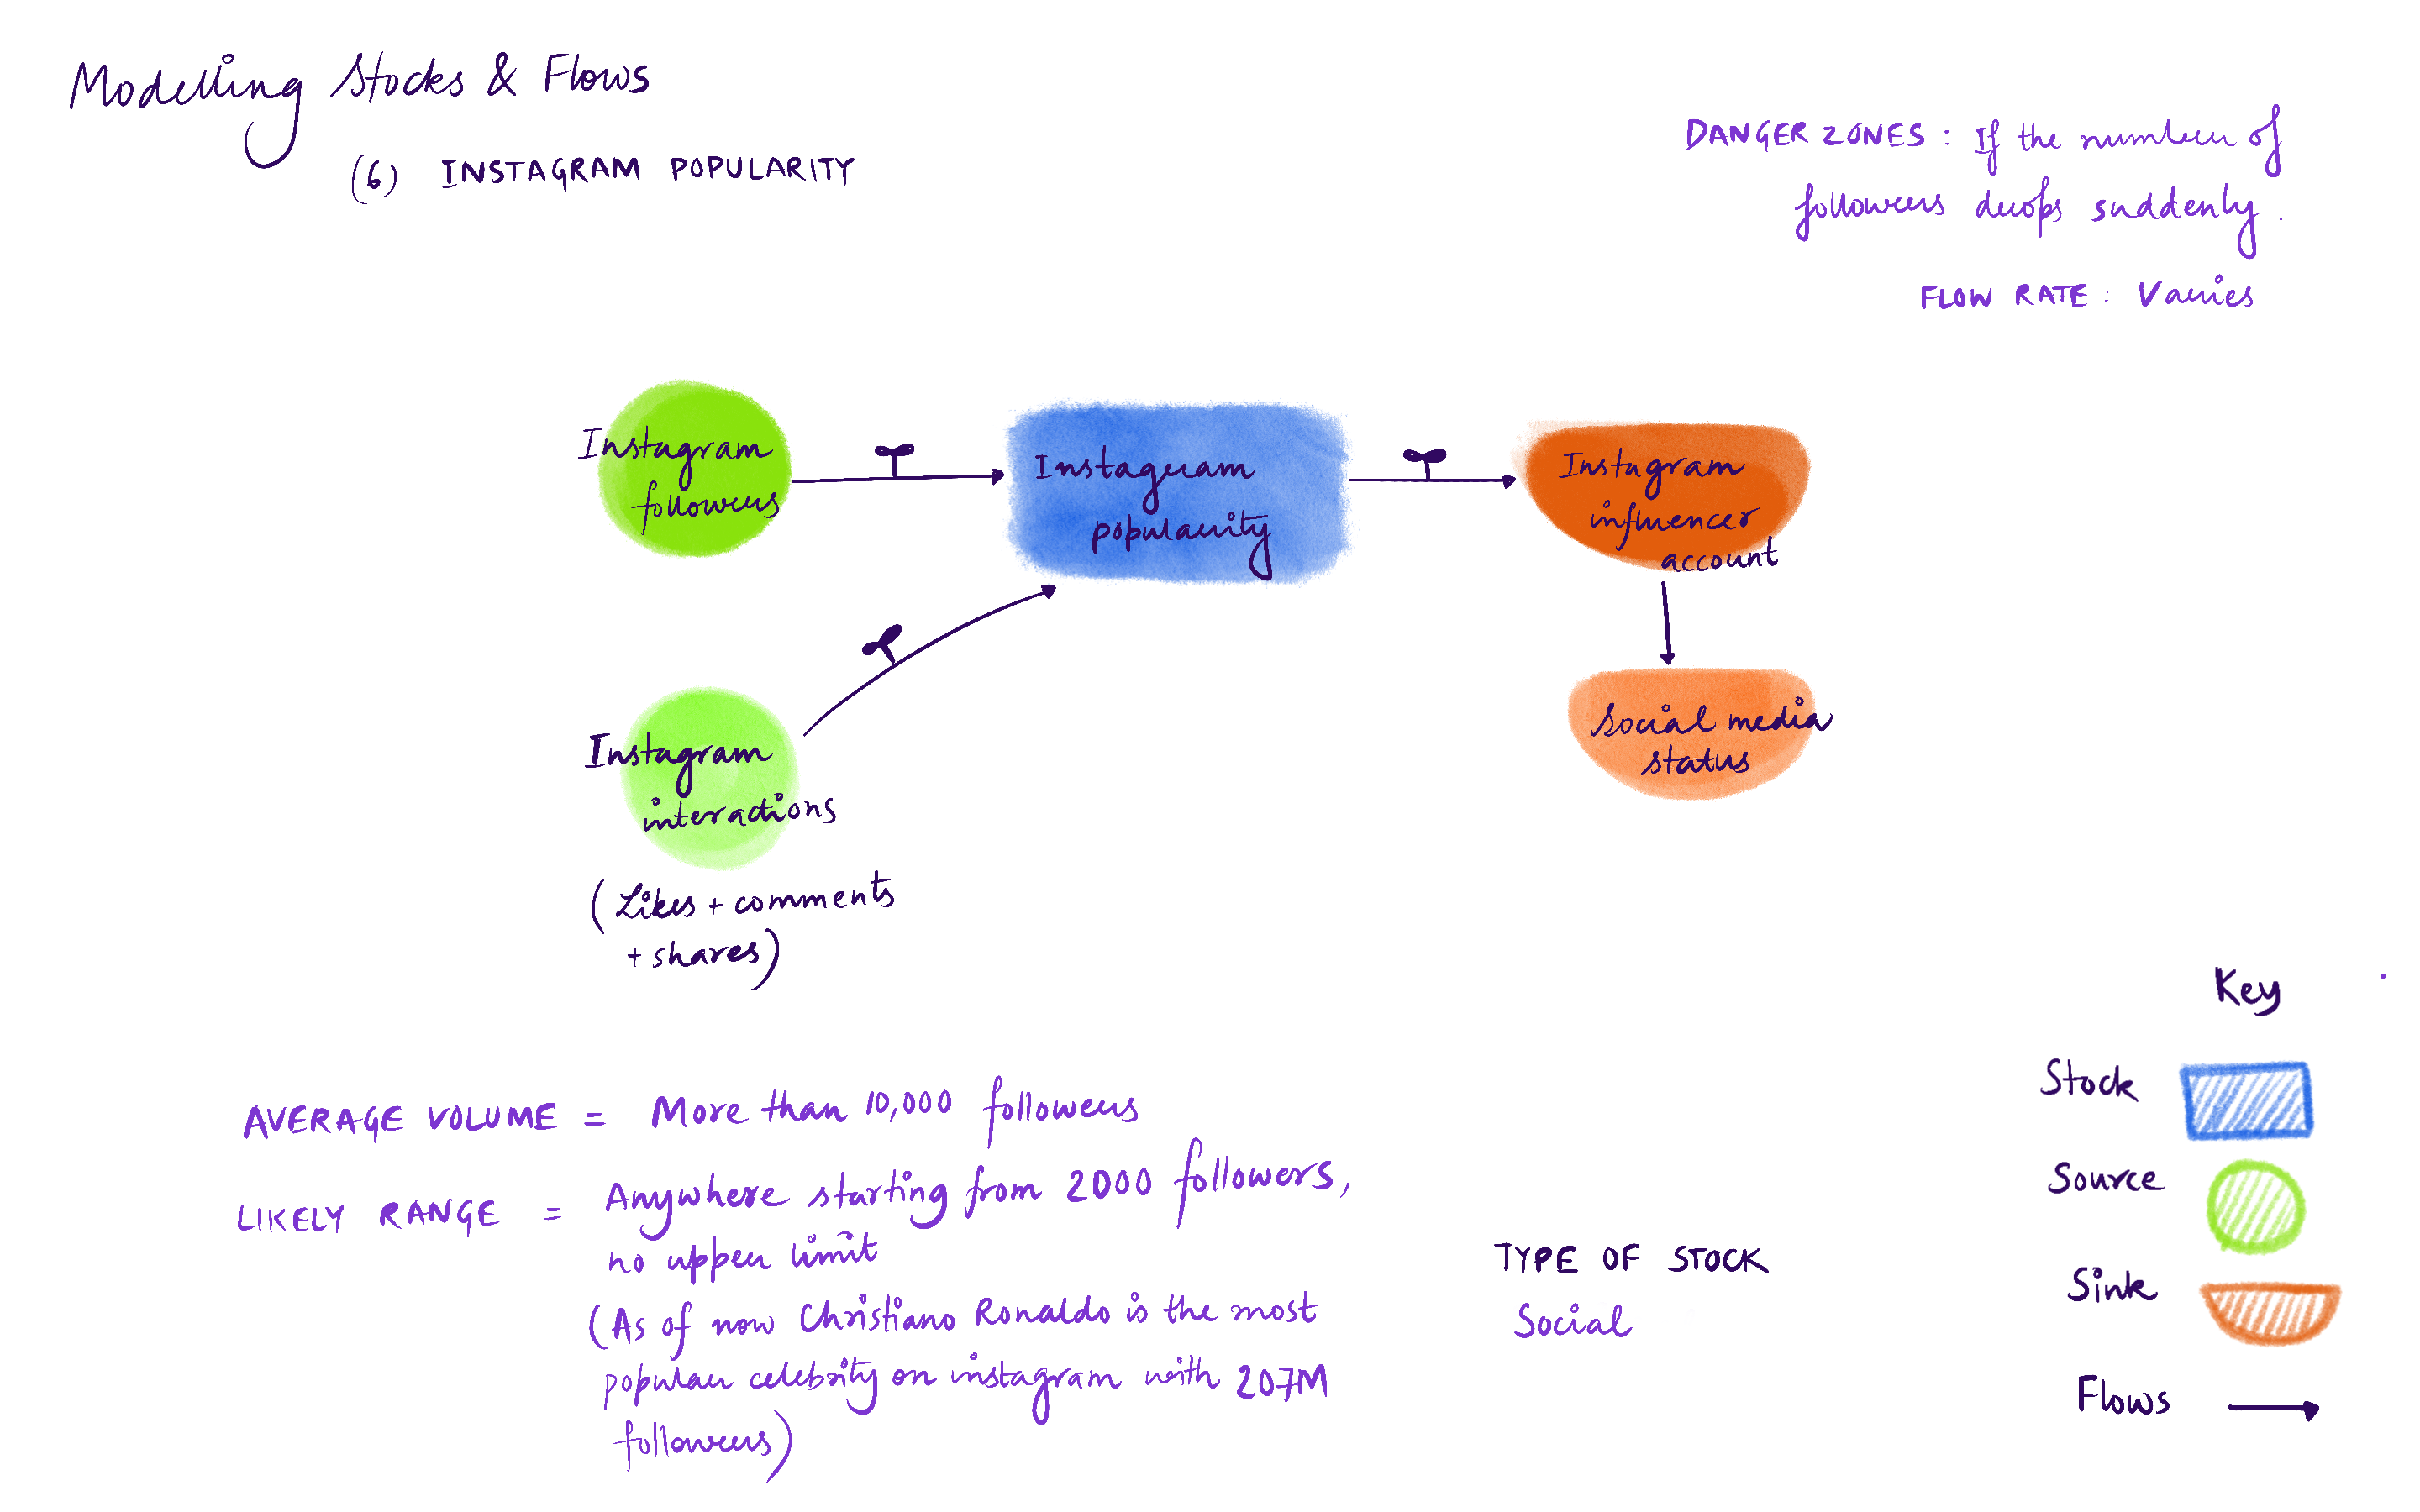 Modelling Stocks & Flows
(6) INSTAGRAM POPULARITY
DANGER ZONES : If the number of
followers drops suddenly.
FLOW RATE : Varies
Instagram
followers
Instagram
popularity
Instagram
influencer
account
Instagram
interactions
(Likes + comments
+ shares)
Social media
status
AVERAGE VOLUME = More than 10,000 followers
LIKELY RANGE = Anywhere starting from 2000 followers,
no upper limit
(As of now Christiano Ronaldo is the most
popular celebrity on instagram with 207M
followers)
TYPE OF STOCK
Social
Key
Stock
Source
Sink
Flows